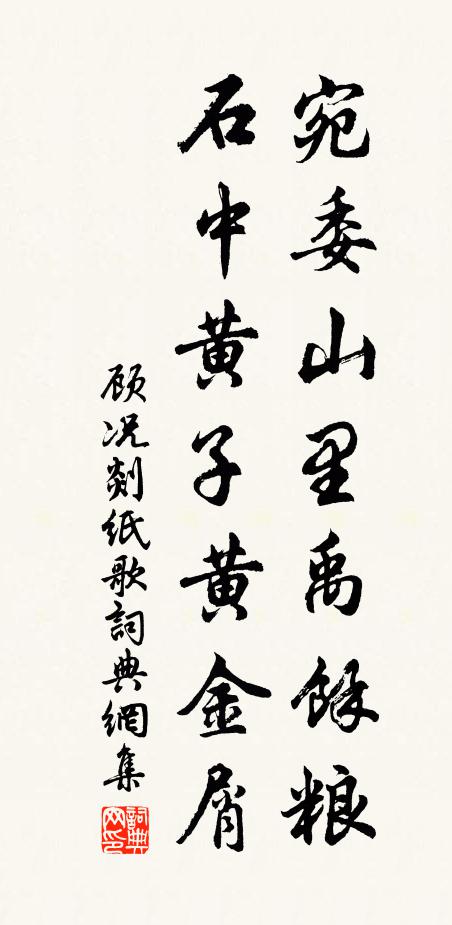 宛委山里禹餘粮
石中黄子黄金屑
顾况剡纸歌詞典網集
詞典網印